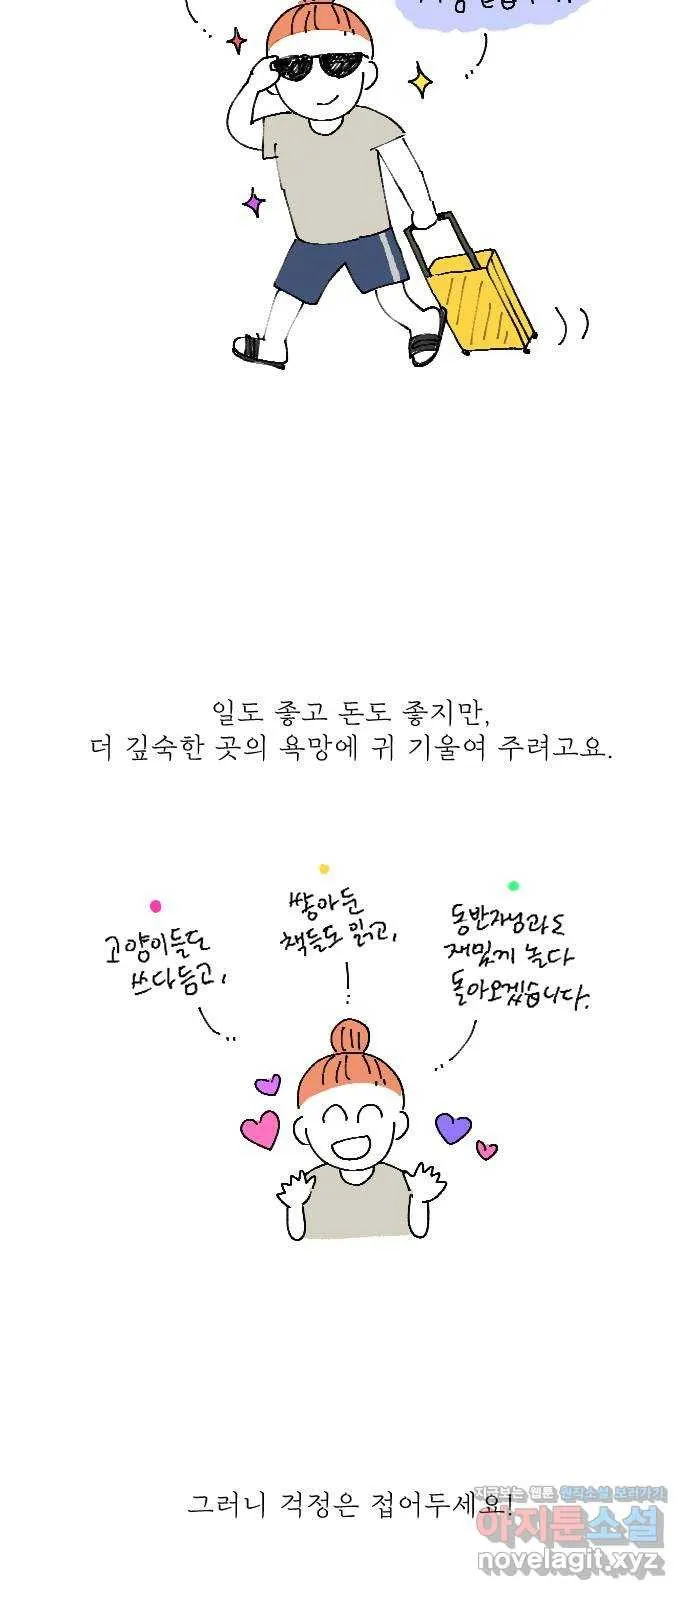 일도 좋고 돈도 좋지만,
더 깊숙한 곳의 욕망에 귀 기울여 주려고요.
고양이들도
쓰다듬고,
쌓아둔
책들도 읽고,
동반자님과도
재밌게 놀다
돌아오겠습니다.
그러니 걱정은 접어두세요!
지금보는 웹툰 원작소설 보러가기
아지툰소설
novelagit.xyz